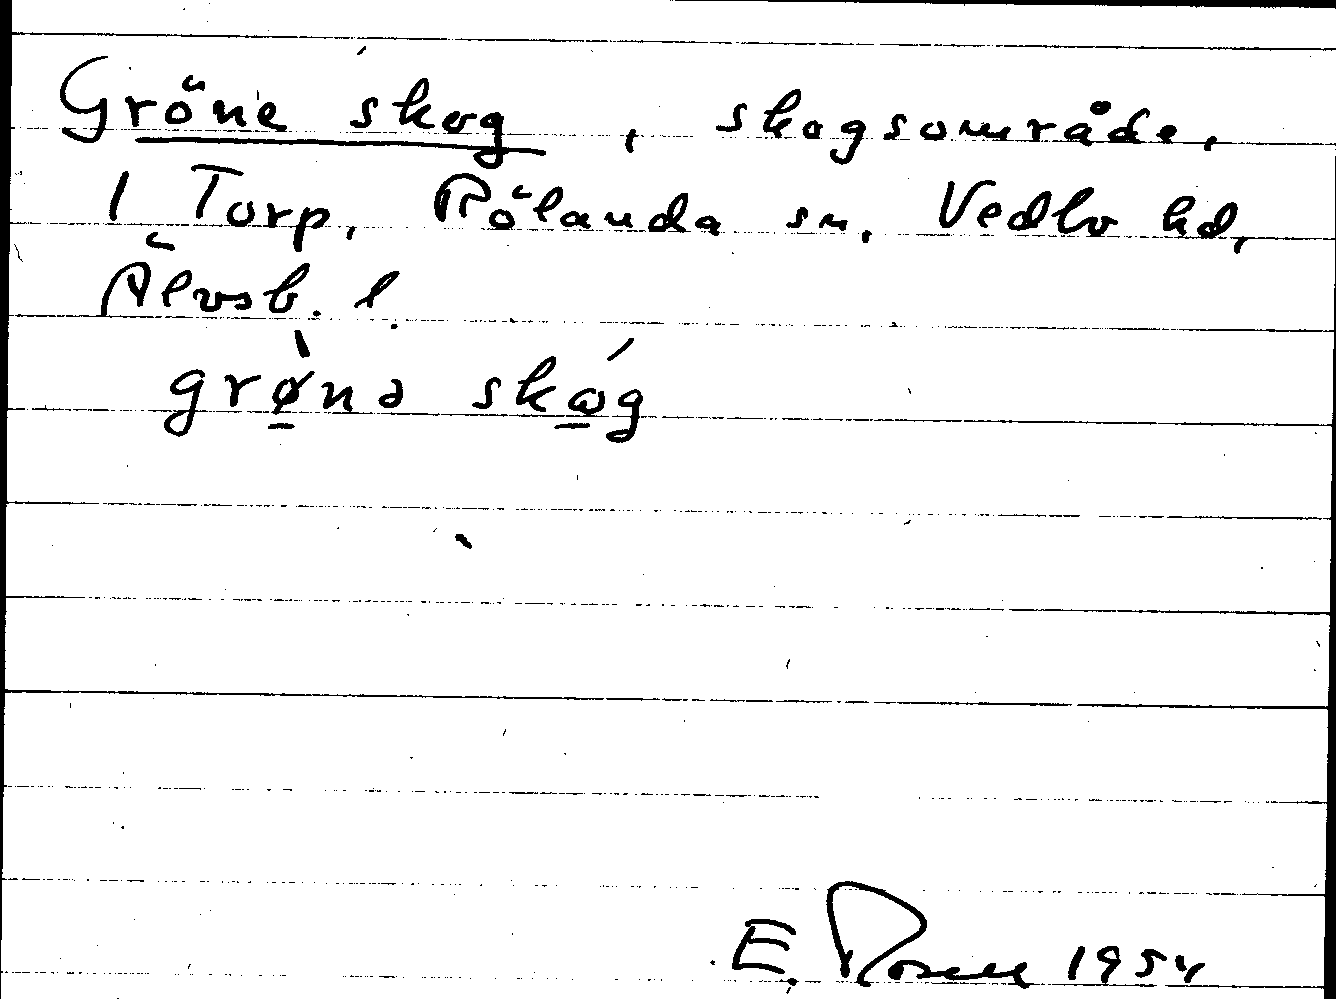 Gröne skog, skogsområde,
1 Torp, Rölanda sn, Vedbo hd,
Älvsb. l.
grø̀nə skóg
E. Rosell 1954